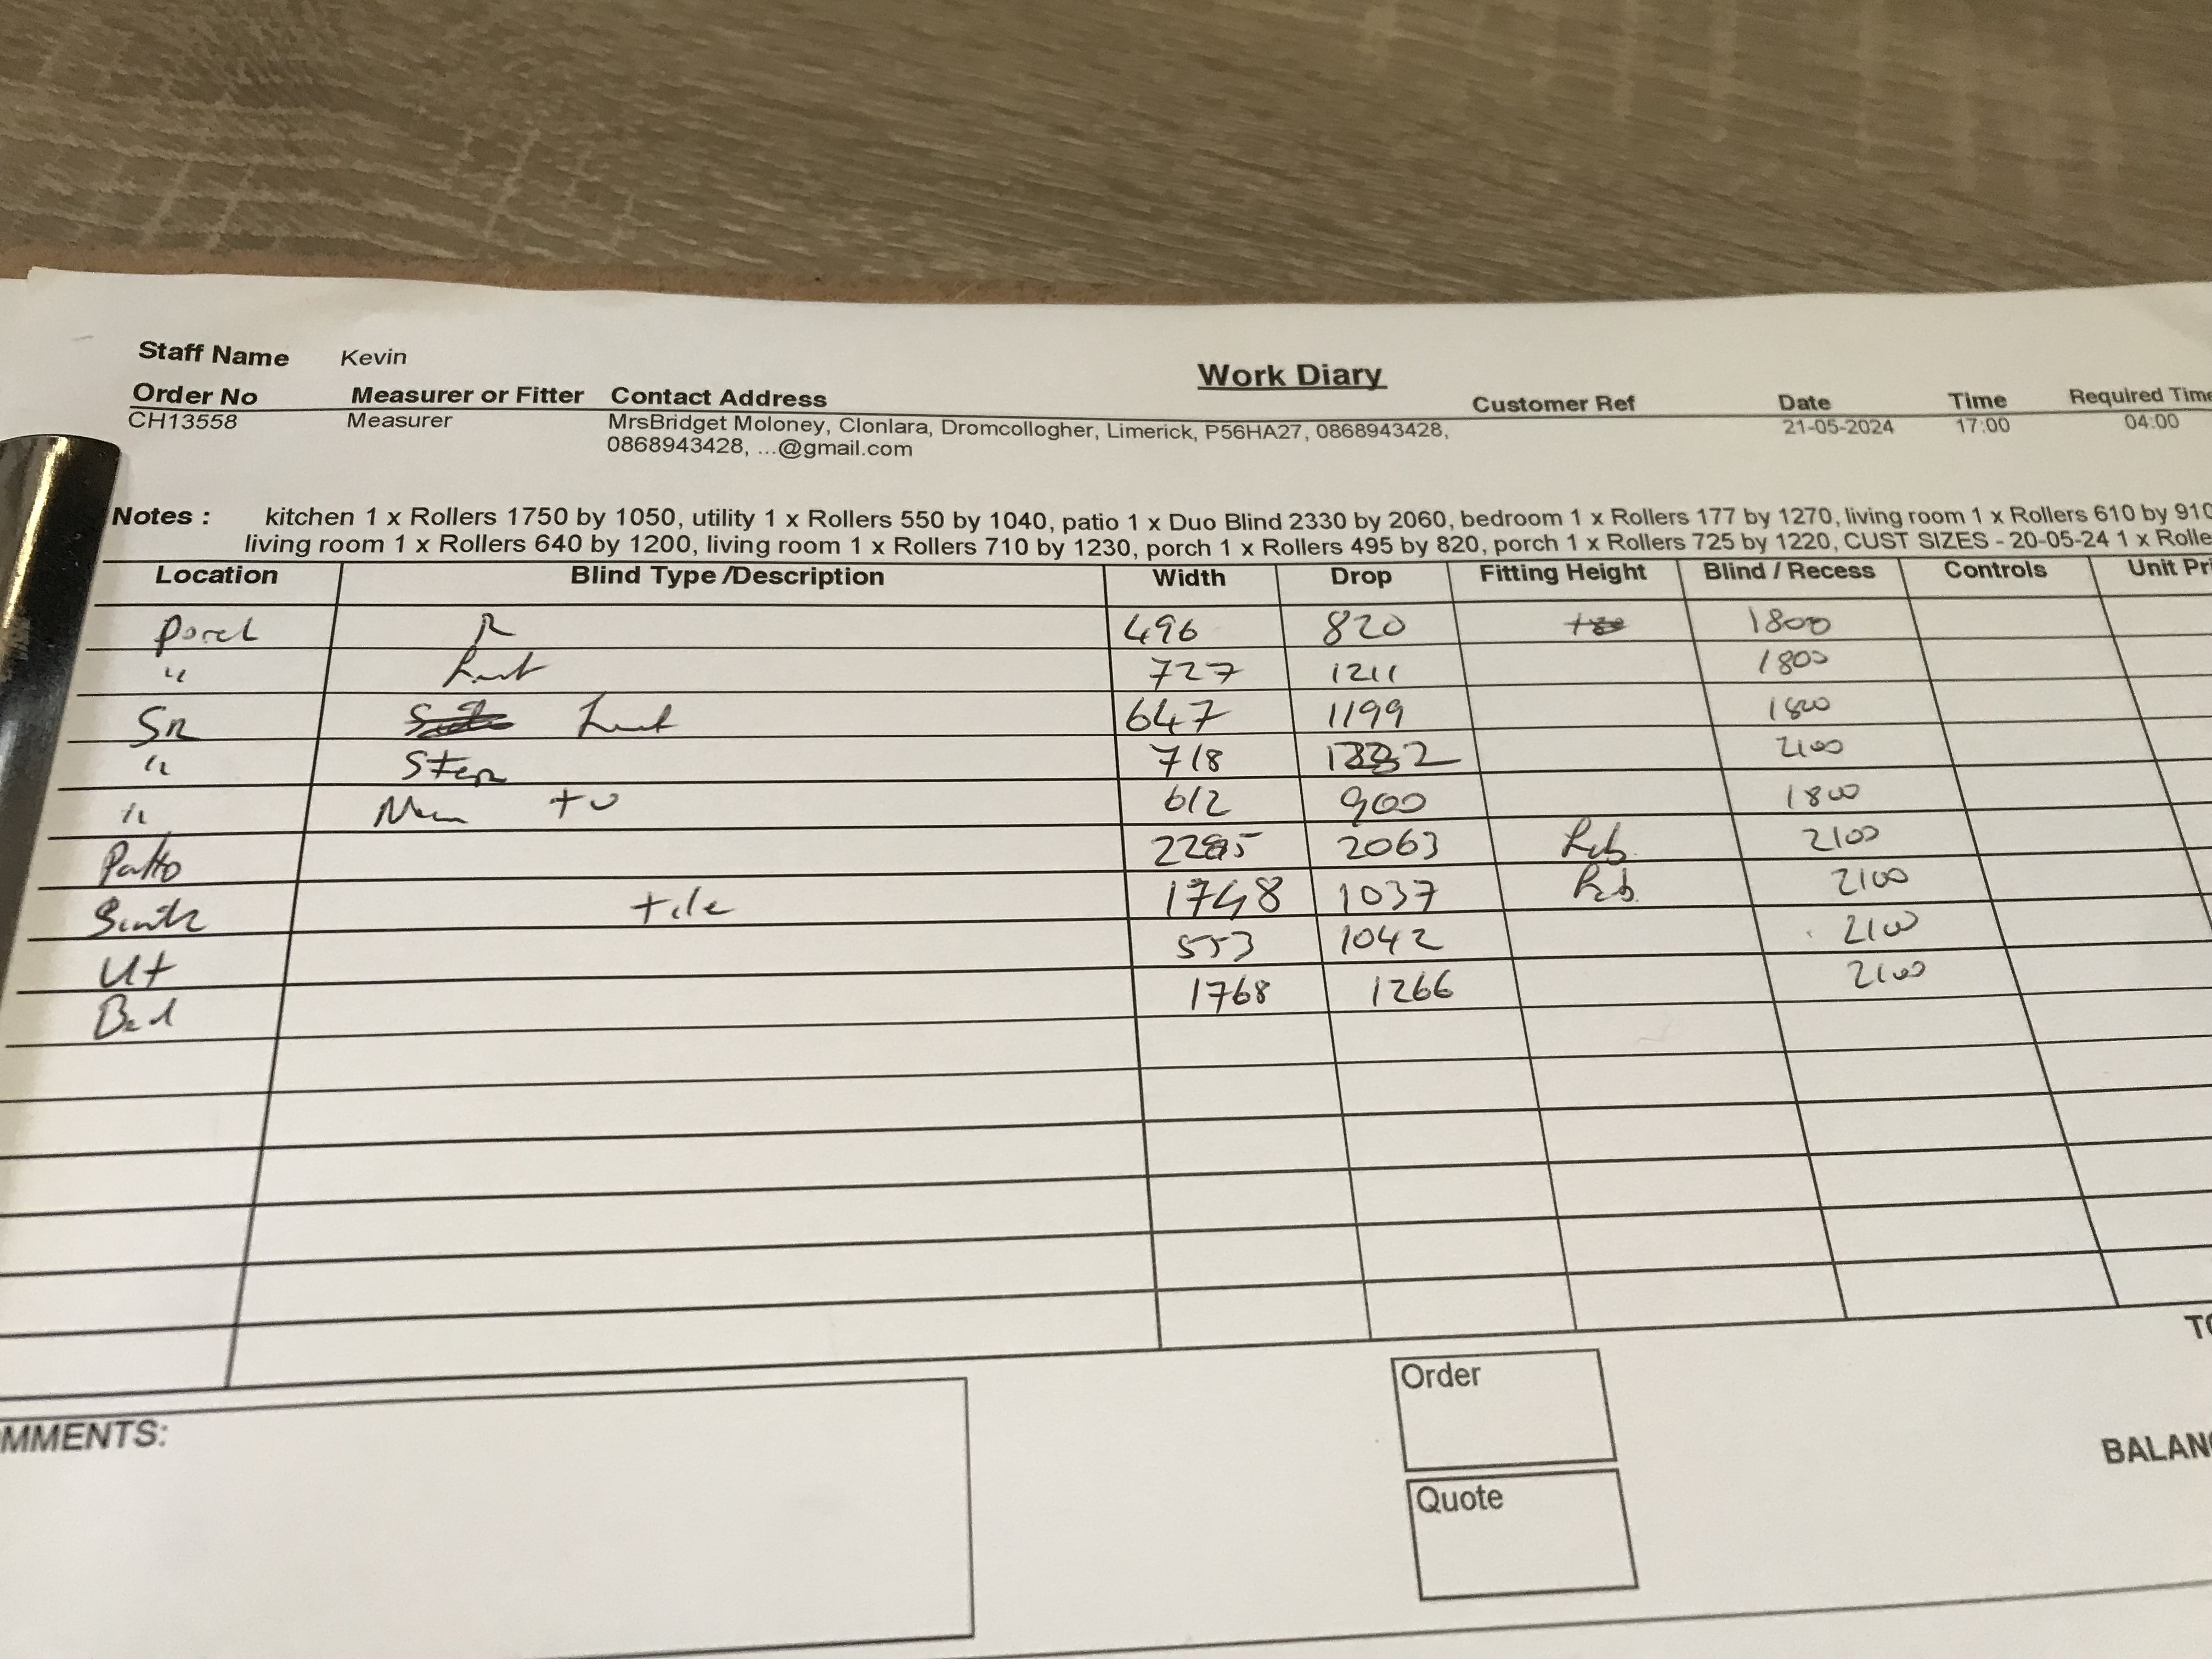 Staff Name Kevin
Work Diary
Order No Measurer or Fitter Contact Address Customer Ref Date Time Required Time
CH13558 Measurer MrsBridget Moloney, Clonlara, Dromcollogher, Limerick, P56HA27, 0868943428, 21-05-2024 17:00 04:00
0868943428, ...@gmail.com
Notes : kitchen 1 x Rollers 1750 by 1050, utility 1 x Rollers 550 by 1040, patio 1 x Duo Blind 2330 by 2060, bedroom 1 x Rollers 177 by 1270, living room 1 x Rollers 610 by 910
living room 1 x Rollers 640 by 1200, living room 1 x Rollers 710 by 1230, porch 1 x Rollers 495 by 820, porch 1 x Rollers 725 by 1220, CUST SIZES - 20-05-24 1 x Rolle
Location Blind Type /Description Width Drop Fitting Height Blind / Recess Controls Unit Pri
Porch R 496 820 1800
" 727 1211 1800
SR 647 1199 1800
" 718 2100
" tv 612 900 1800
Patio 2063 2100
tile 1748 1037 2100
Ut 553 1042 2100
Bed 1768 1266 2100
TO
MMENTS:
Order
BALAN
Quote